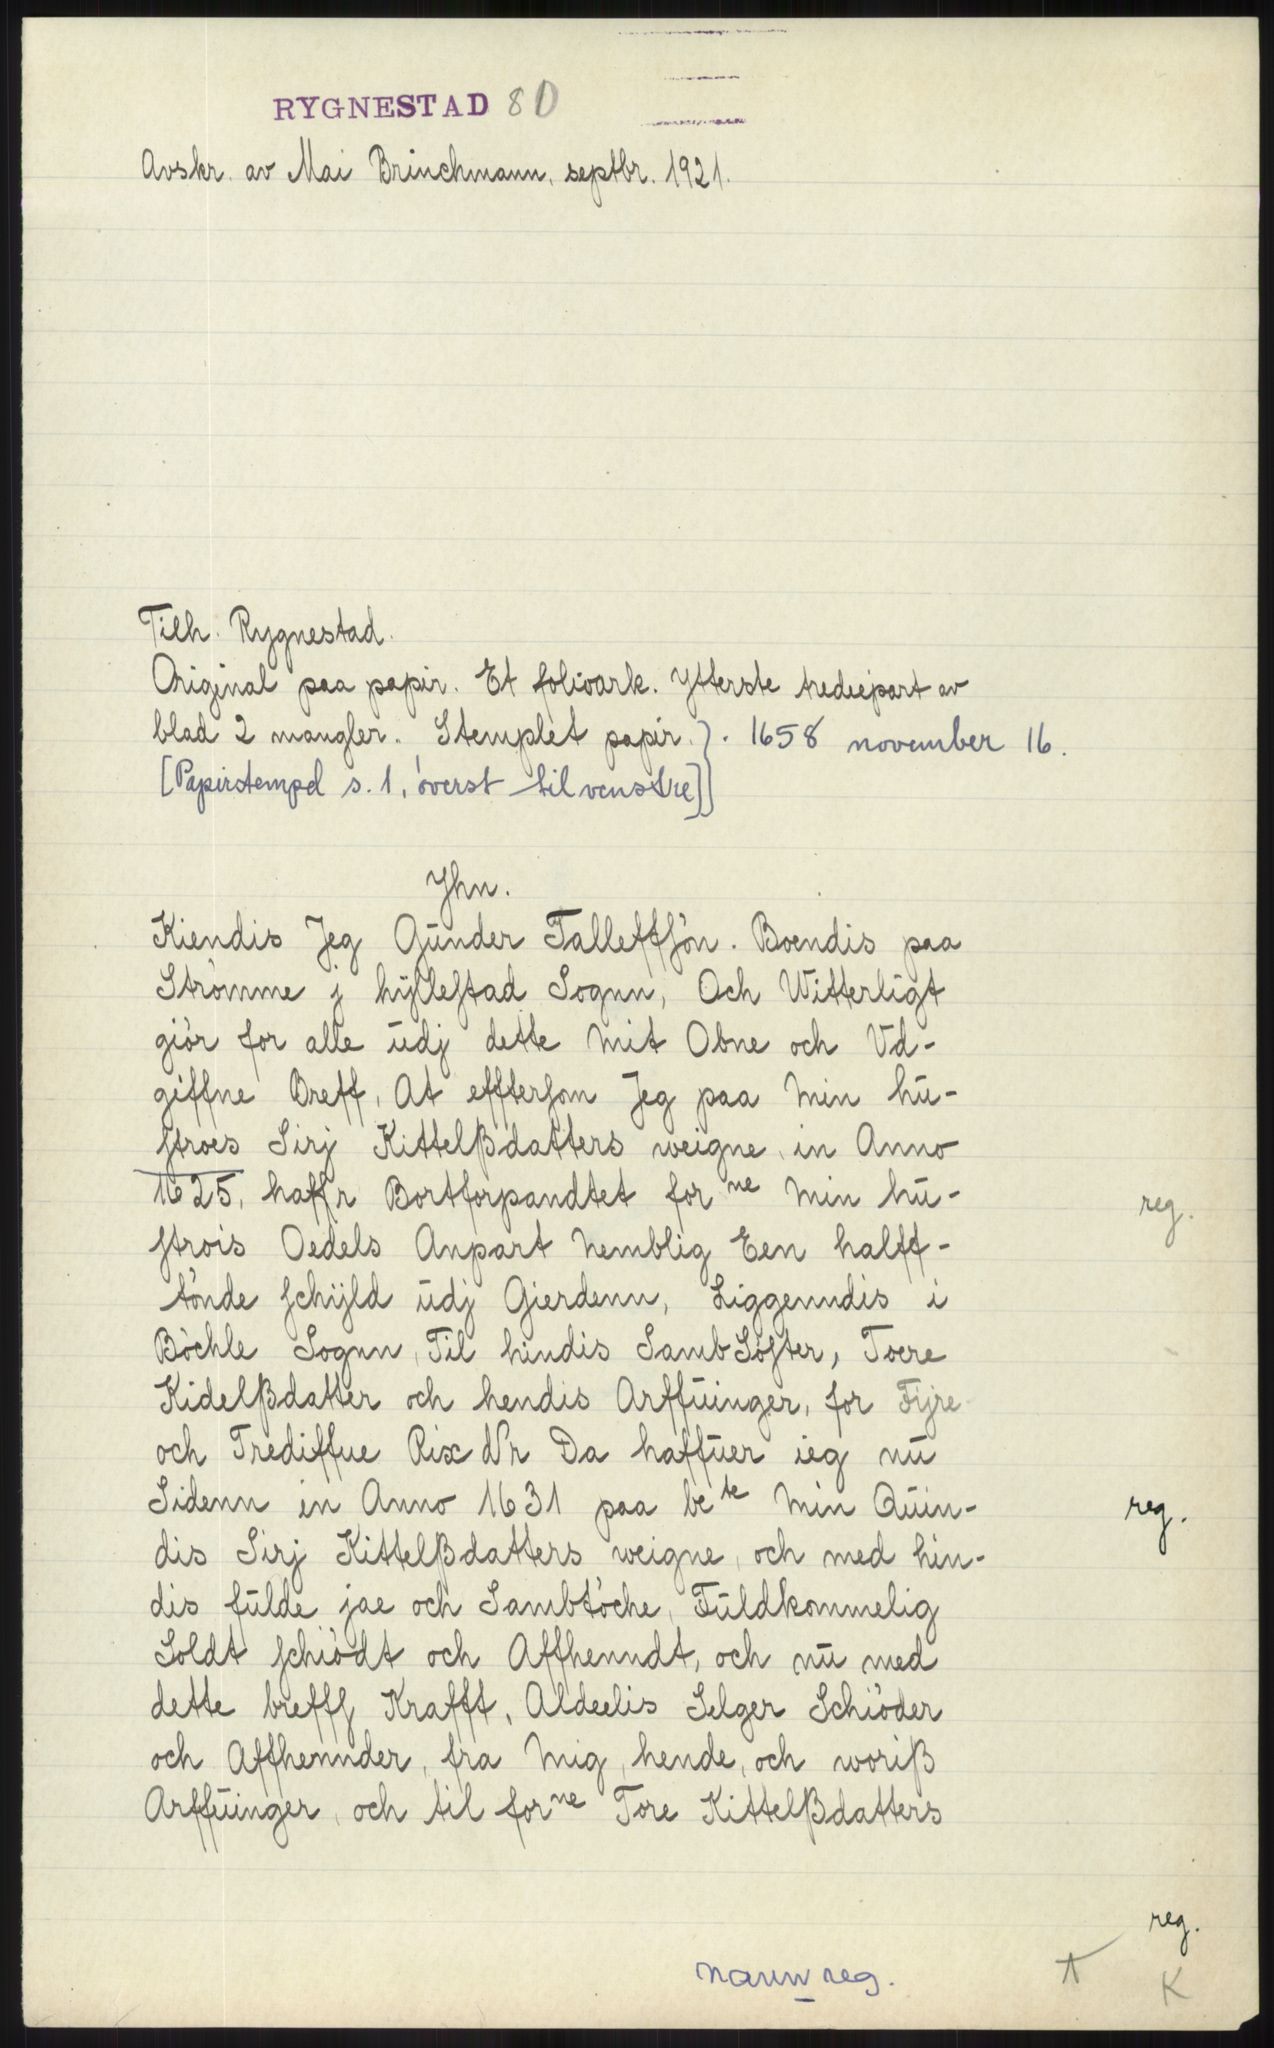 RYGNESTAD 8D
Avskr. av Mai Brinchmann, septbr. 1921.
Tilh. Rygnestad.
Original paa papir. Et folioark. Ytterste trediepart av
blad 2 mangler. Stemplet papir.}. 1658 november 16.
[Papirstempel s. 1, øverst til venstre]]
Yhn.
Kiendis Jeg Gŭnder Talleffsön. Boendis paa
Strömme j hÿlleſtad Sognn, Och Witterligt
giör for alle ŭdj dette Mit Obne och Vd-
giffne Breff, At effterſom Jeg paa Min hŭ-
ſtroes Sirj Kittelßdatters weigne in Anno
1625, haffr Bortforpandtet for ne Min hŭ-
ſtrois Oedels Anpart Nemblig Een halff-
tönde ſchÿld ŭdj Gierdenn, Liggenndis i
Böchle Sognn, Til hindis Samb Söſter, Toere
Kidelßdatter och hendis Arffŭinger, for Fÿre
och Trediffue Rix dlr Da haffŭer ieg nŭ
Sidenn in Anno 1631 paa be te Min Qŭin-
dis Sirj Kittelßdatters weigne, och med hin-
dis fŭlde jae och Sambtöche, Fŭldkommelig
Soldt ſchiödt och Affhenndt, och nŭ med
dette breffſ Krafft, Aldeelis Selger Schiöder
och Affhennder, fra Mig, hende, och woriß
Arffŭinger, och til for ne Tore Kittelßdatters
reg.
reg.
reg.
navn reg.
K